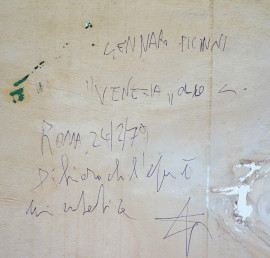 GENNARO PICINNI
"VENEZIA„ olio
ROMA, 24/2/79
Dichiaro che l'opera è
mia autentica